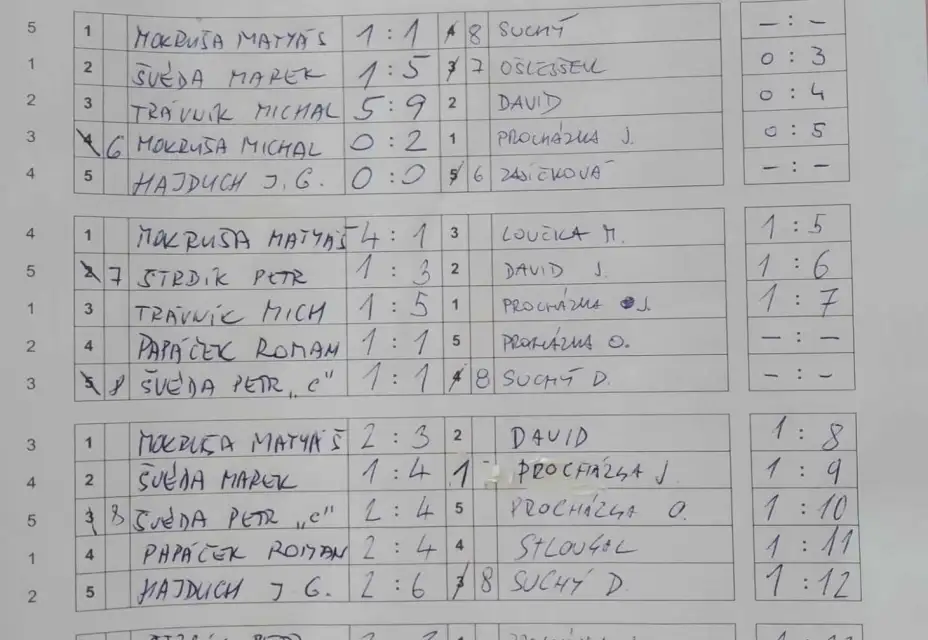 5 1 MOKRUŠA MATYÁŠ 1 : 1 4 8 SUCHÝ - : -
1 2 ŠVÉDA MAREK 1 : 5 3 7 OŠLEJŠEK 0 : 3
2 3 TRÁVNÍK MICHAL 5 : 9 2 DAVID 0 : 4
3 4 6 MOKRUŠA MICHAL 0 : 2 1 PROCHÁZKA J. 0 : 5
4 5 HAJDUCH J. G. 0 : 0 5 6 - : -
4 1 MOKRUŠA MATYÁŠ 4 : 1 3 LOUČKA M. 1 : 5
5 2 7 STRDÍK PETR 1 : 3 2 DAVID J. 1 : 6
1 3 TRÁVNÍK MICH 1 : 5 1 PROCHÁZKA J. 1 : 7
2 4 PAPÁČEK ROMAN 1 : 1 5 PROCHÁZKA O. - : -
3 5 8 ŠVÉDA PETR „C" 1 : 1 4 8 SUCHÝ D. - : -
3 1 MOKRUŠA MATYÁŠ 2 : 3 2 DAVID 1 : 8
4 2 ŠVÉDA MAREK 1 : 4 1 PROCHÁZKA J 1 : 9
5 3 8 ŠVÉDA PETR „C" 2 : 4 5 PROCHÁZKA O. 1 : 10
1 4 PAPÁČEK ROMAN 2 : 4 4 STLOUKAL 1 : 11
2 5 HAJDUCH J G. 2 : 6 3 8 SUCHÝ D. 1 : 12